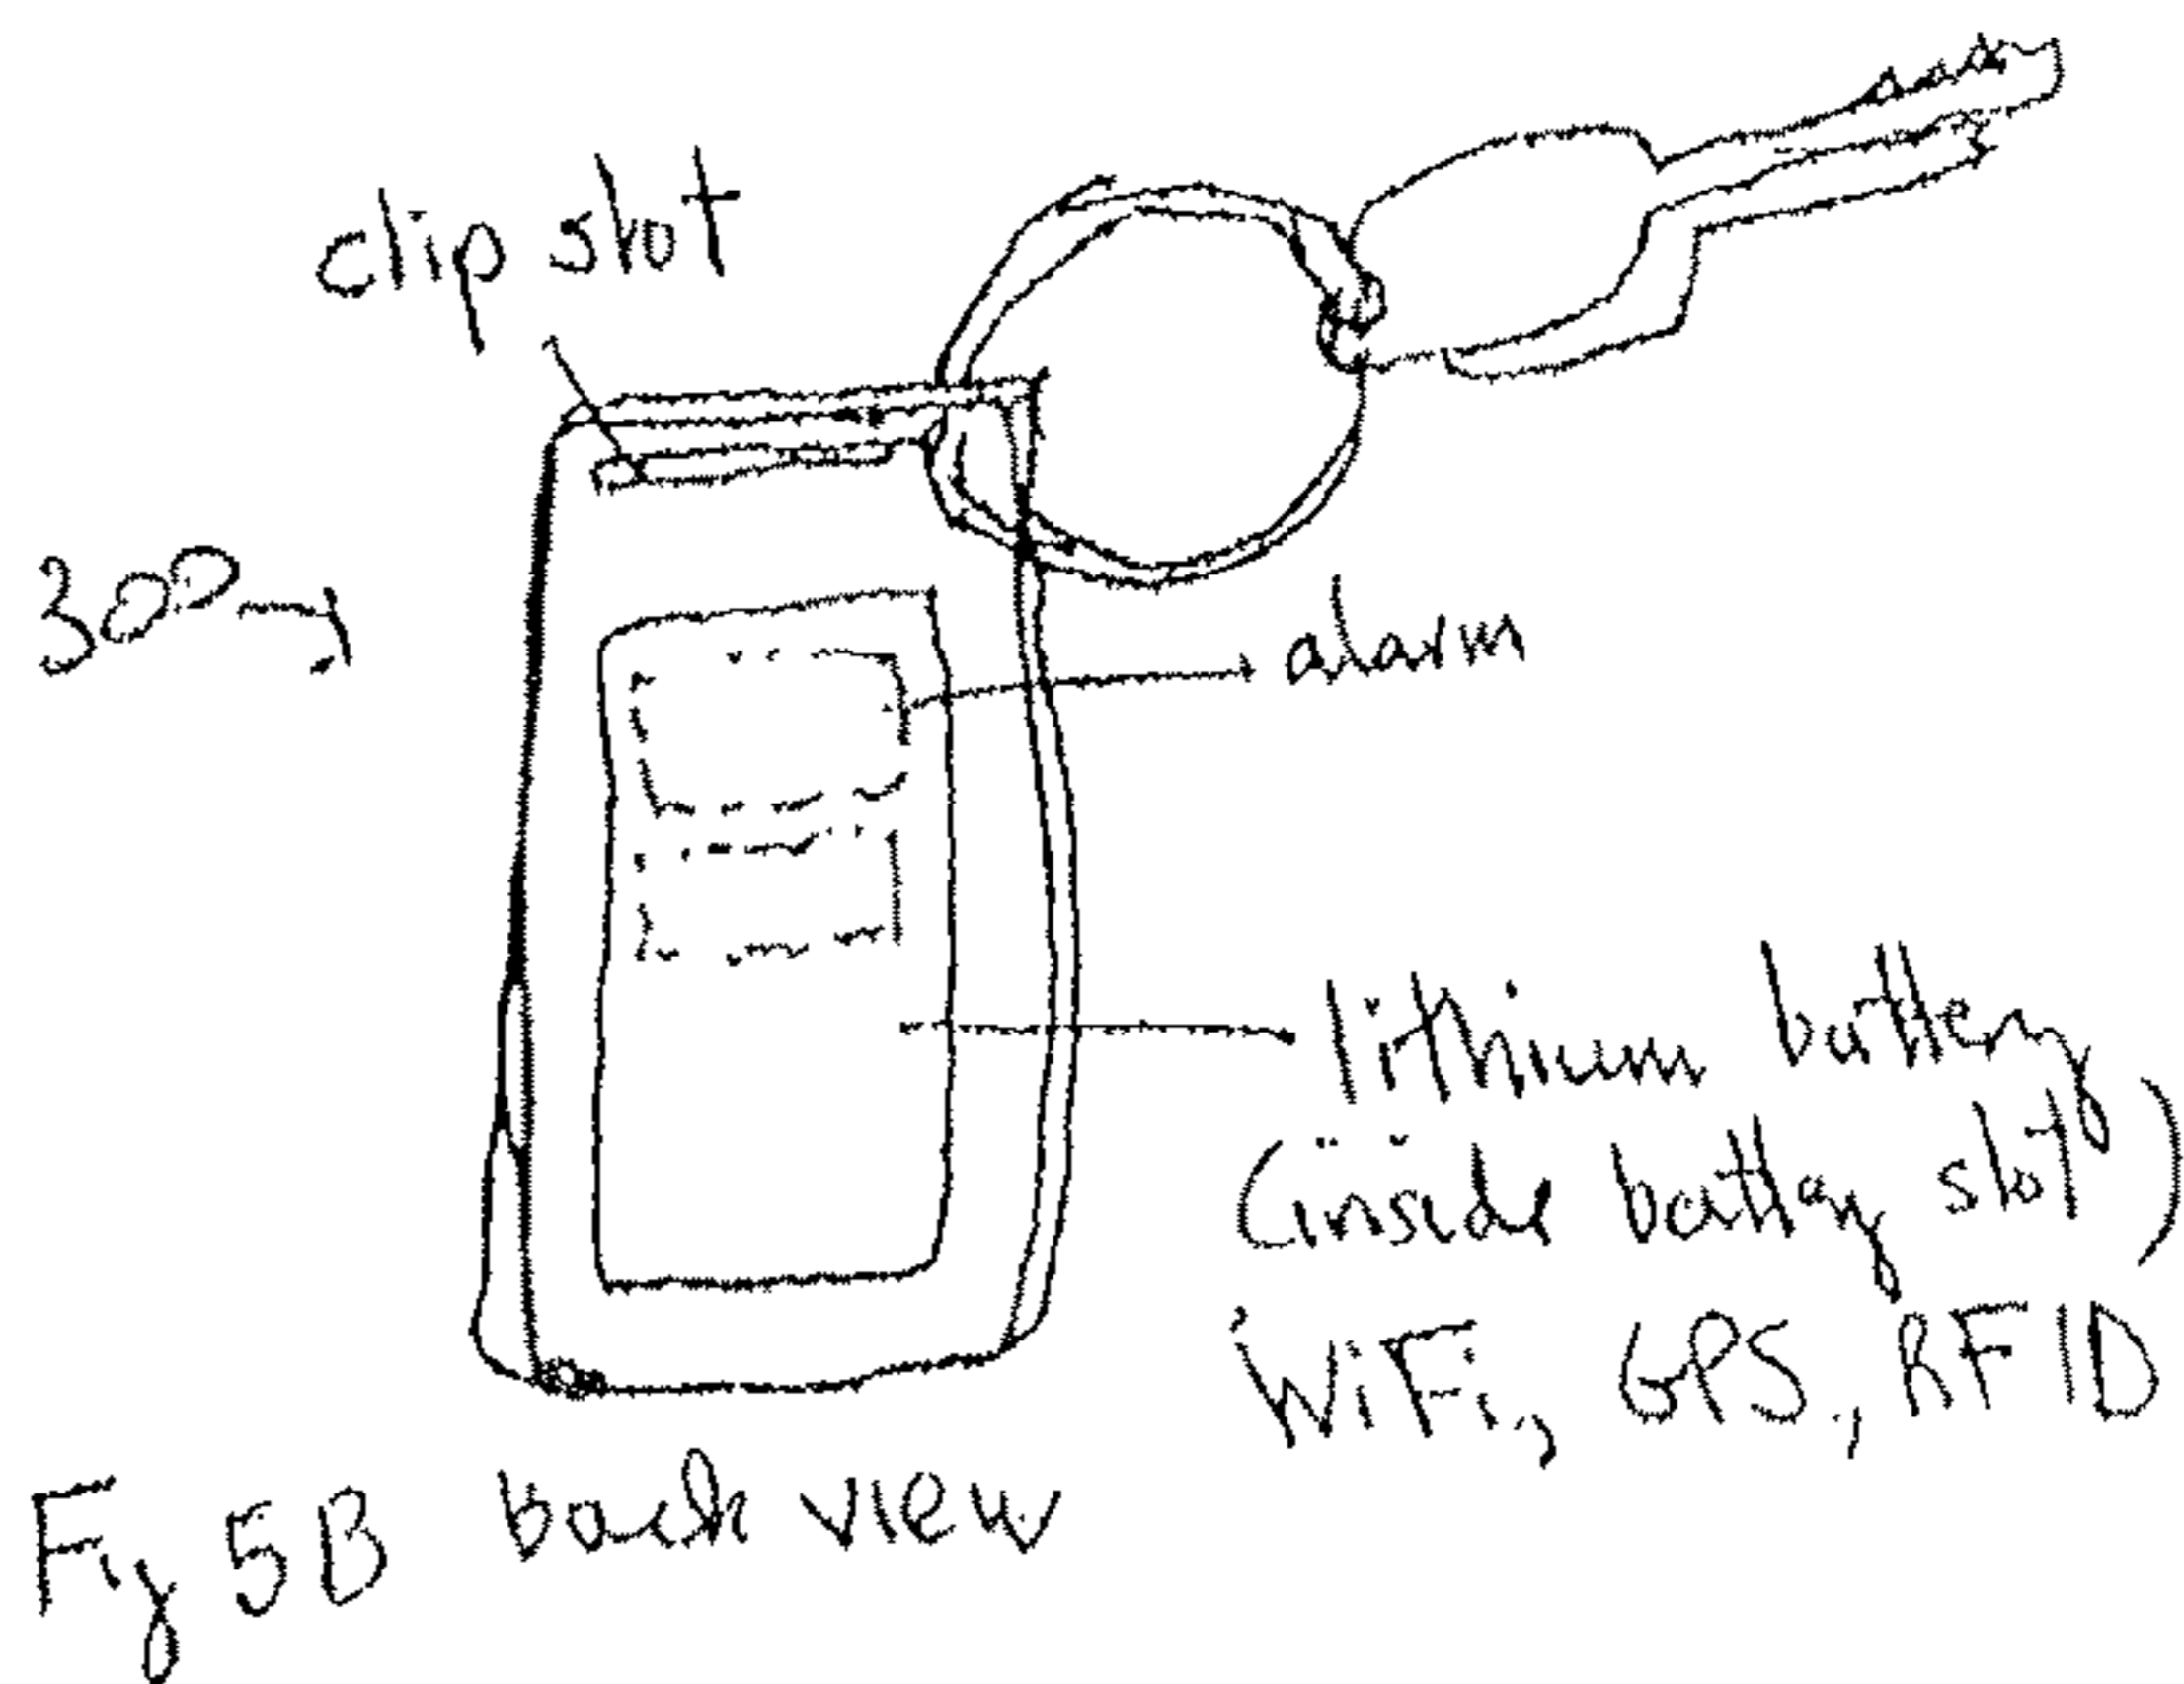 clip slot
300
alarm
lithium battery
(inside battery slot)
WiFi, GPS, RFID
Fig 5B back view